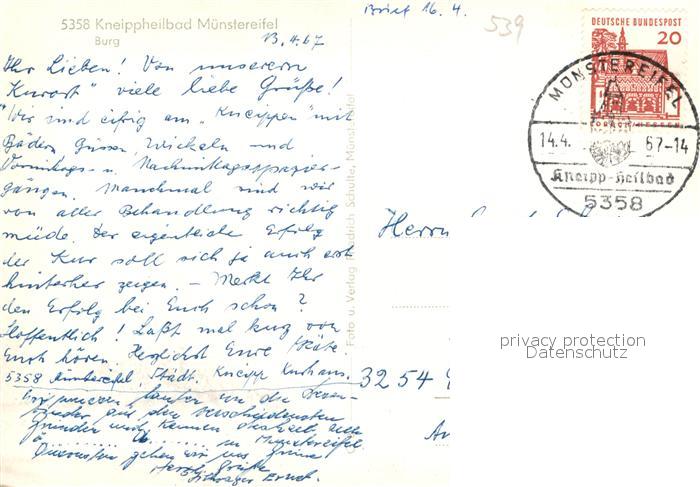 5358 Kneippheilbad Münstereifel
Burg
13.4.67
Ihr Lieben! Von unserem
"Kurort" viele liebe Grüße!
Wir sind eifrig am "Kneippen" mit
Bädern Güssen, Wickeln und
Vormittags- u. Nachmittagsspazier-
gängen. Manchmal sind wir
von aller Behandlung richtig
müde. Der eigentliche Erfolg
der Kur soll sich ja auch erst
hinterher zeigen. – Merkt Ihr
den Erfolg bei Euch schon?
Hoffentlich! Laßt mal kurz von
Euch hören. Herzlichst Eure Käte
5358 Münstereifel, Städt. Kneipp Kurhaus.
Wir
aus den verschiedensten
Gründen und können deshalb
in Münstereifel
gehen wir ins Grüne
Herzl. Grüße
Schwager Ernst
Foto u. Verlag Friedrich Schulte, Münstereifel
Brief 16.4.
539
DEUTSCHE BUNDESPOST
20
MÜNSTEREIFEL
14.4.67-14
Kneipp-Heilbad
5358
Herrn
3254
privacy protection
Datenschutz